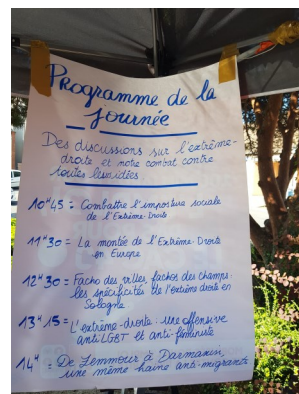 Programme de la
Journée
Des discussions sur l'extrême-
droite et notre combat contre
toutes leurs idées.
10H45 : Combattre l'imposture sociale
de l'Extrême-Droite
11H30 = La montée de l'Extrême-Droite
en Europe
12H30 = Facho des villes, fachos des champs :
les spécificités de l'extrême droite en
Sologne
13H15 = L'extrême-droite : une offensive
anti LGBT et anti-féministe
14H = De Zemmour à Darmanin,
une même haine anti-migrants